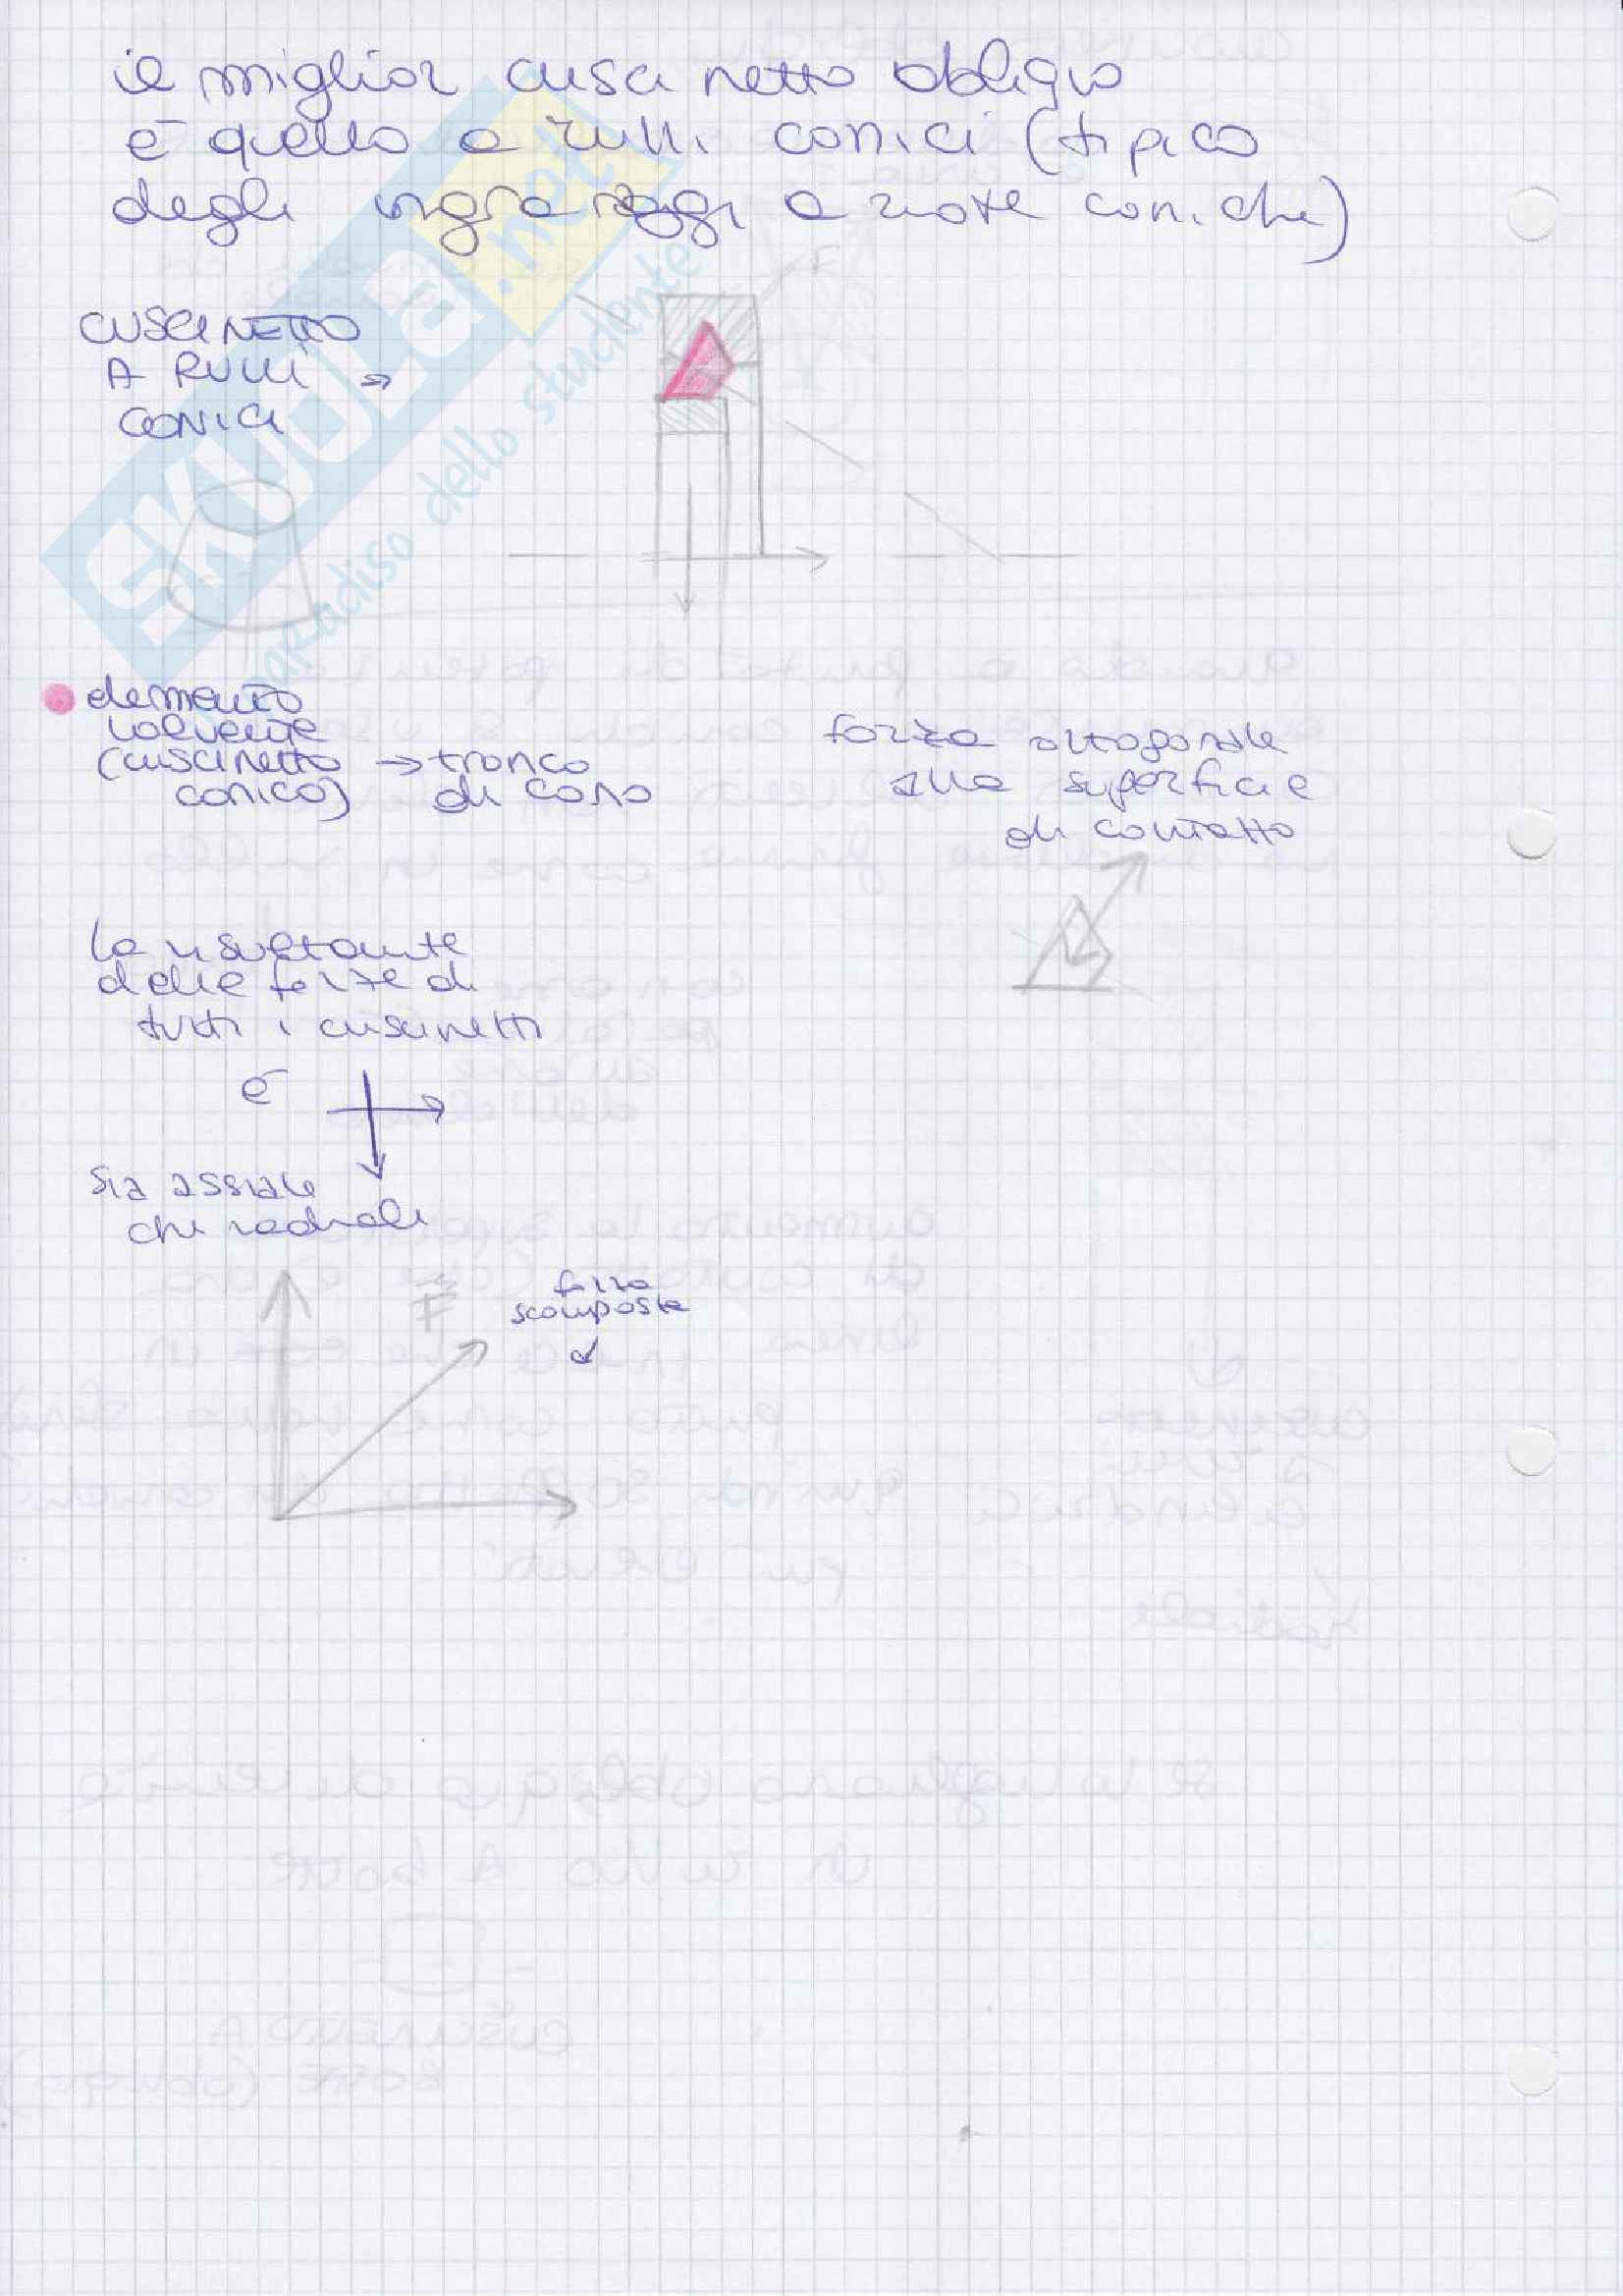 il miglior cuscinetto obliquo
è quello a rulli conici (tipico
degli ingranaggi a ruote coniche)
CUSCINETTO
A RULLI →
CONICI
elemento
volvente
(cuscinetto → tronco
conico) di cono
forza ortogonale
alla superficie
di contatto
la risultante
delle forze di
tutti i cuscinetti
è
sia assiale
che radiale
F
forza
scomposta
SKUOLA.net
paradiso dello studente